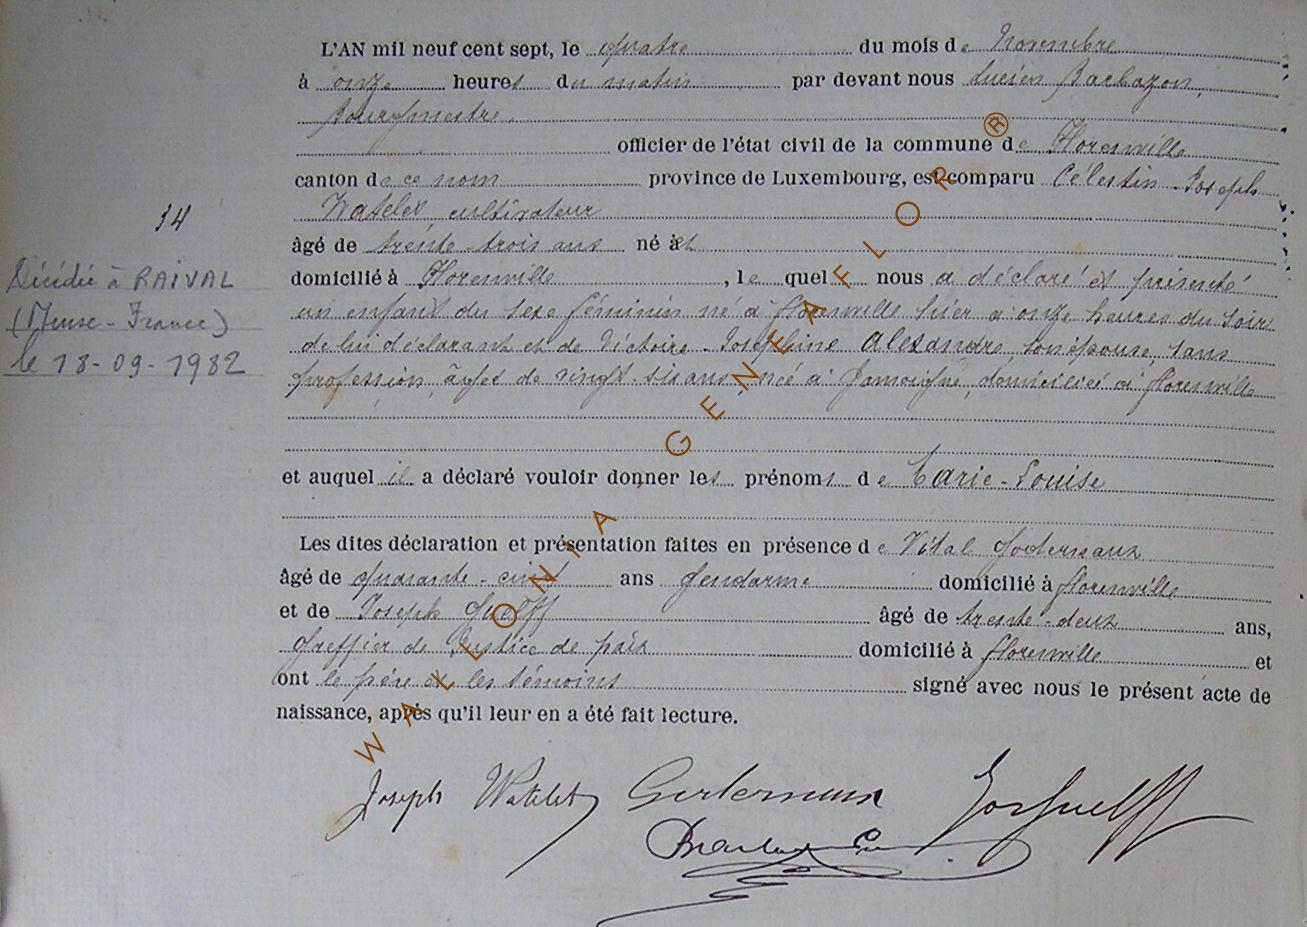 L'AN mil neuf cent sept, le quatre du mois de Novembre
à onze heures du matin par devant nous Lucien Barbazon,
Bourgmestre,
officier de l'état civil de la commune de Florenville
canton de ce nom province de Luxembourg, est comparu Célestin-Joseph
Watelet cultivateur
âgé de trente-trois ans né à et
domicilié à Florenville, le quel nous a déclaré et présenté
un enfant du sexe féminin né à Florenville hier à onze heures du soir
de lui déclarant et de Victoire-Joséphine Alexandre, son épouse, sans
profession, âgée de vingt-six ans, née à Jamoigne, domiciliée à Florenville
et auquel il a déclaré vouloir donner les prénoms de Marie-Louise
Les dites déclaration et présentation faites en présence de Vital
âgé de quarante-cinq ans Gendarme domicilié à Florenville
et de Joseph Guelff âgé de trente-deux ans,
Greffier de Justice de paix domicilié à Florenville et
ont le père et les témoins signé avec nous le présent acte de
naissance, après qu'il leur en a été fait lecture.
Joseph Watelet Jos Guelff
34
Décédée à RAIVAL
(Meuse-France)
le 18-09-1982
WALLONIA, GENEAFLOR®